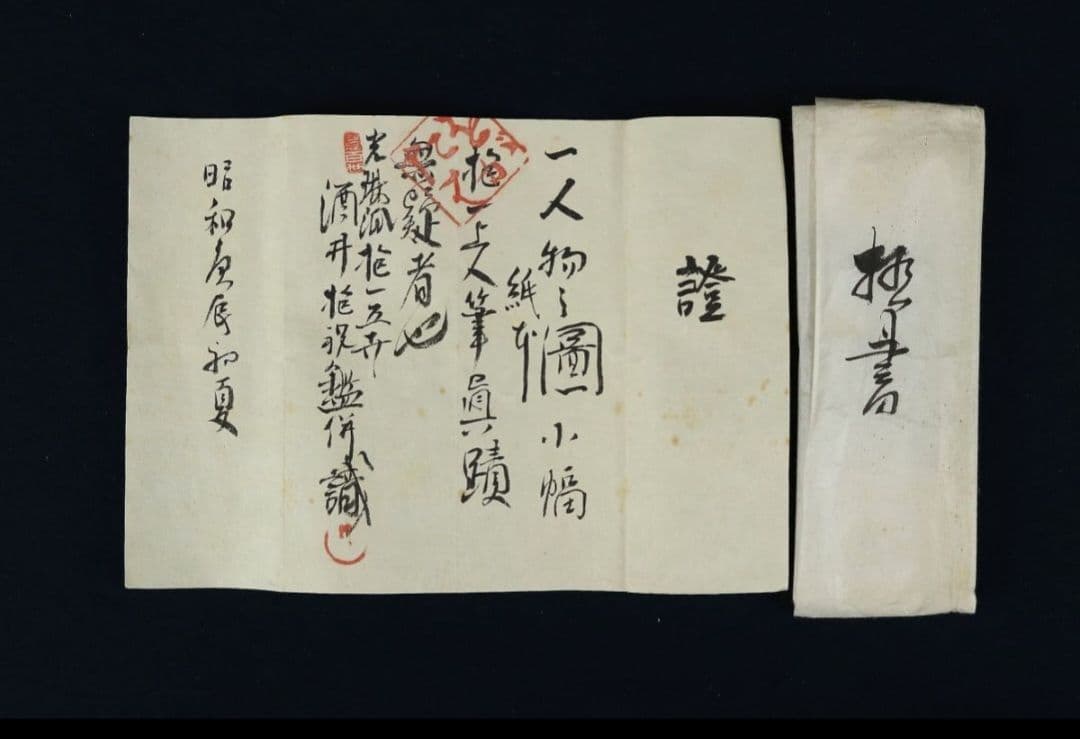 極書
證
一人物之圖小幅
紙本
抱一上人筆眞蹟
無疑者也
光琳派抱一五世
酒井抱祝鑑併識
昭和庚辰初夏